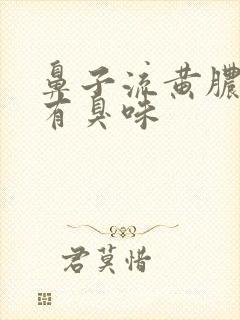 鼻子流黄脓
有臭味
君莫惜